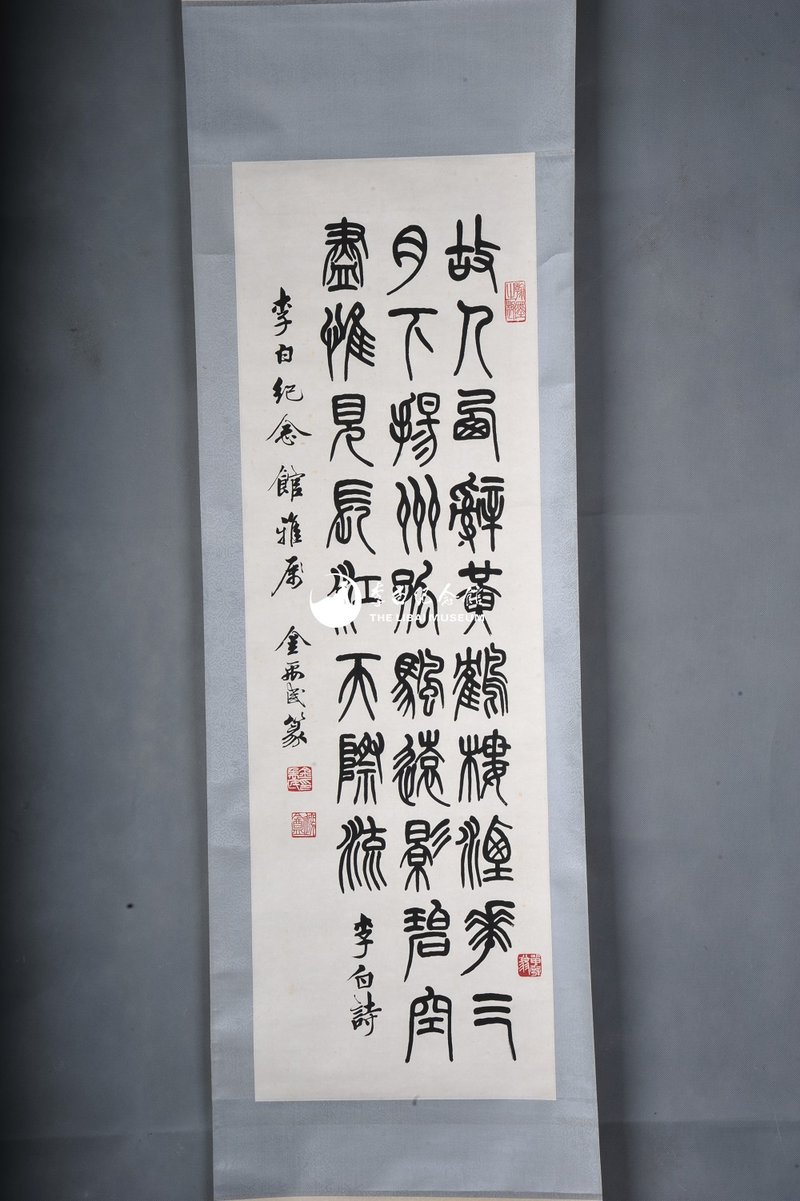 故人西辭黃鶴樓煙華三
月下揚州孤颿遠影碧空
盡惟見長江天際流
李白詩
李白紀念館雅属
金禹民篆
李白纪念馆
THE LIBAI MUSEUM